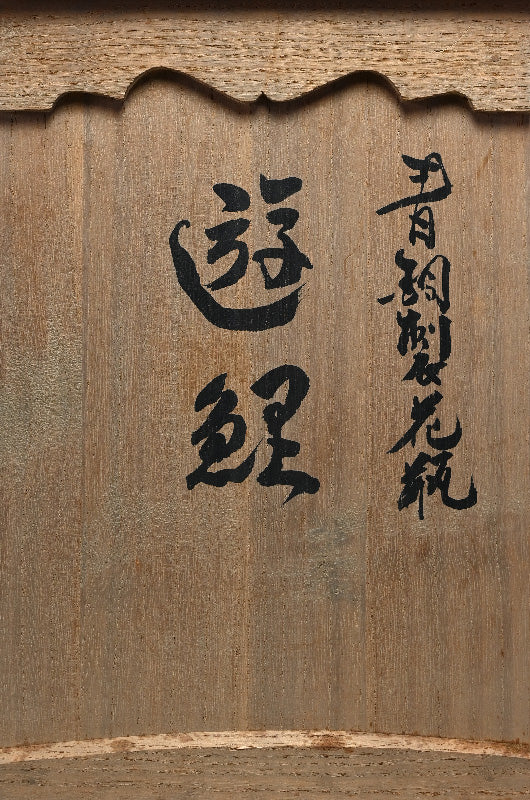 青銅製花瓶
遊鯉